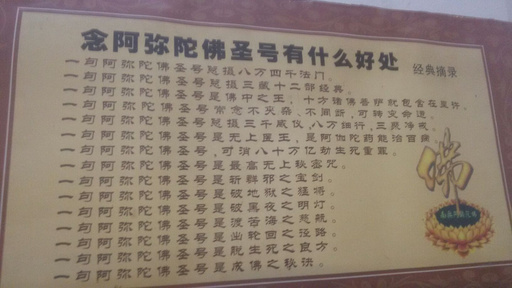 念阿弥陀佛圣号有什么好处
经典摘录
一句阿弥陀佛圣号总摄八万四千法门。
一句阿弥陀佛圣号总摄三藏十二部经典。
一句阿弥陀佛圣号是佛中之王，十方诸佛菩萨就包含在里许
一句阿弥陀佛圣号常念不夹杂、不间断，可转变命运。
一句阿弥陀佛圣号总摄三千威仪、八万细行、三聚净戒。
一句阿弥陀佛圣号是无上医王，是阿伽陀药能治百病
一句阿弥陀佛圣号，可消八十万亿劫生死重罪。
一句阿弥陀佛圣号是最高无上秘密咒。
一句阿弥陀佛圣号是斩群邪之宝剑。
一句阿弥陀佛圣号是破地狱之猛将。
一句阿弥陀佛圣号是破黑夜之明灯。
一句阿弥陀佛圣号是渡苦海之慈航。
一句阿弥陀佛圣号是出轮回之径路。
一句阿弥陀佛圣号是脱生死之良方。
一句阿弥陀佛圣号是成佛之秘诀。
佛